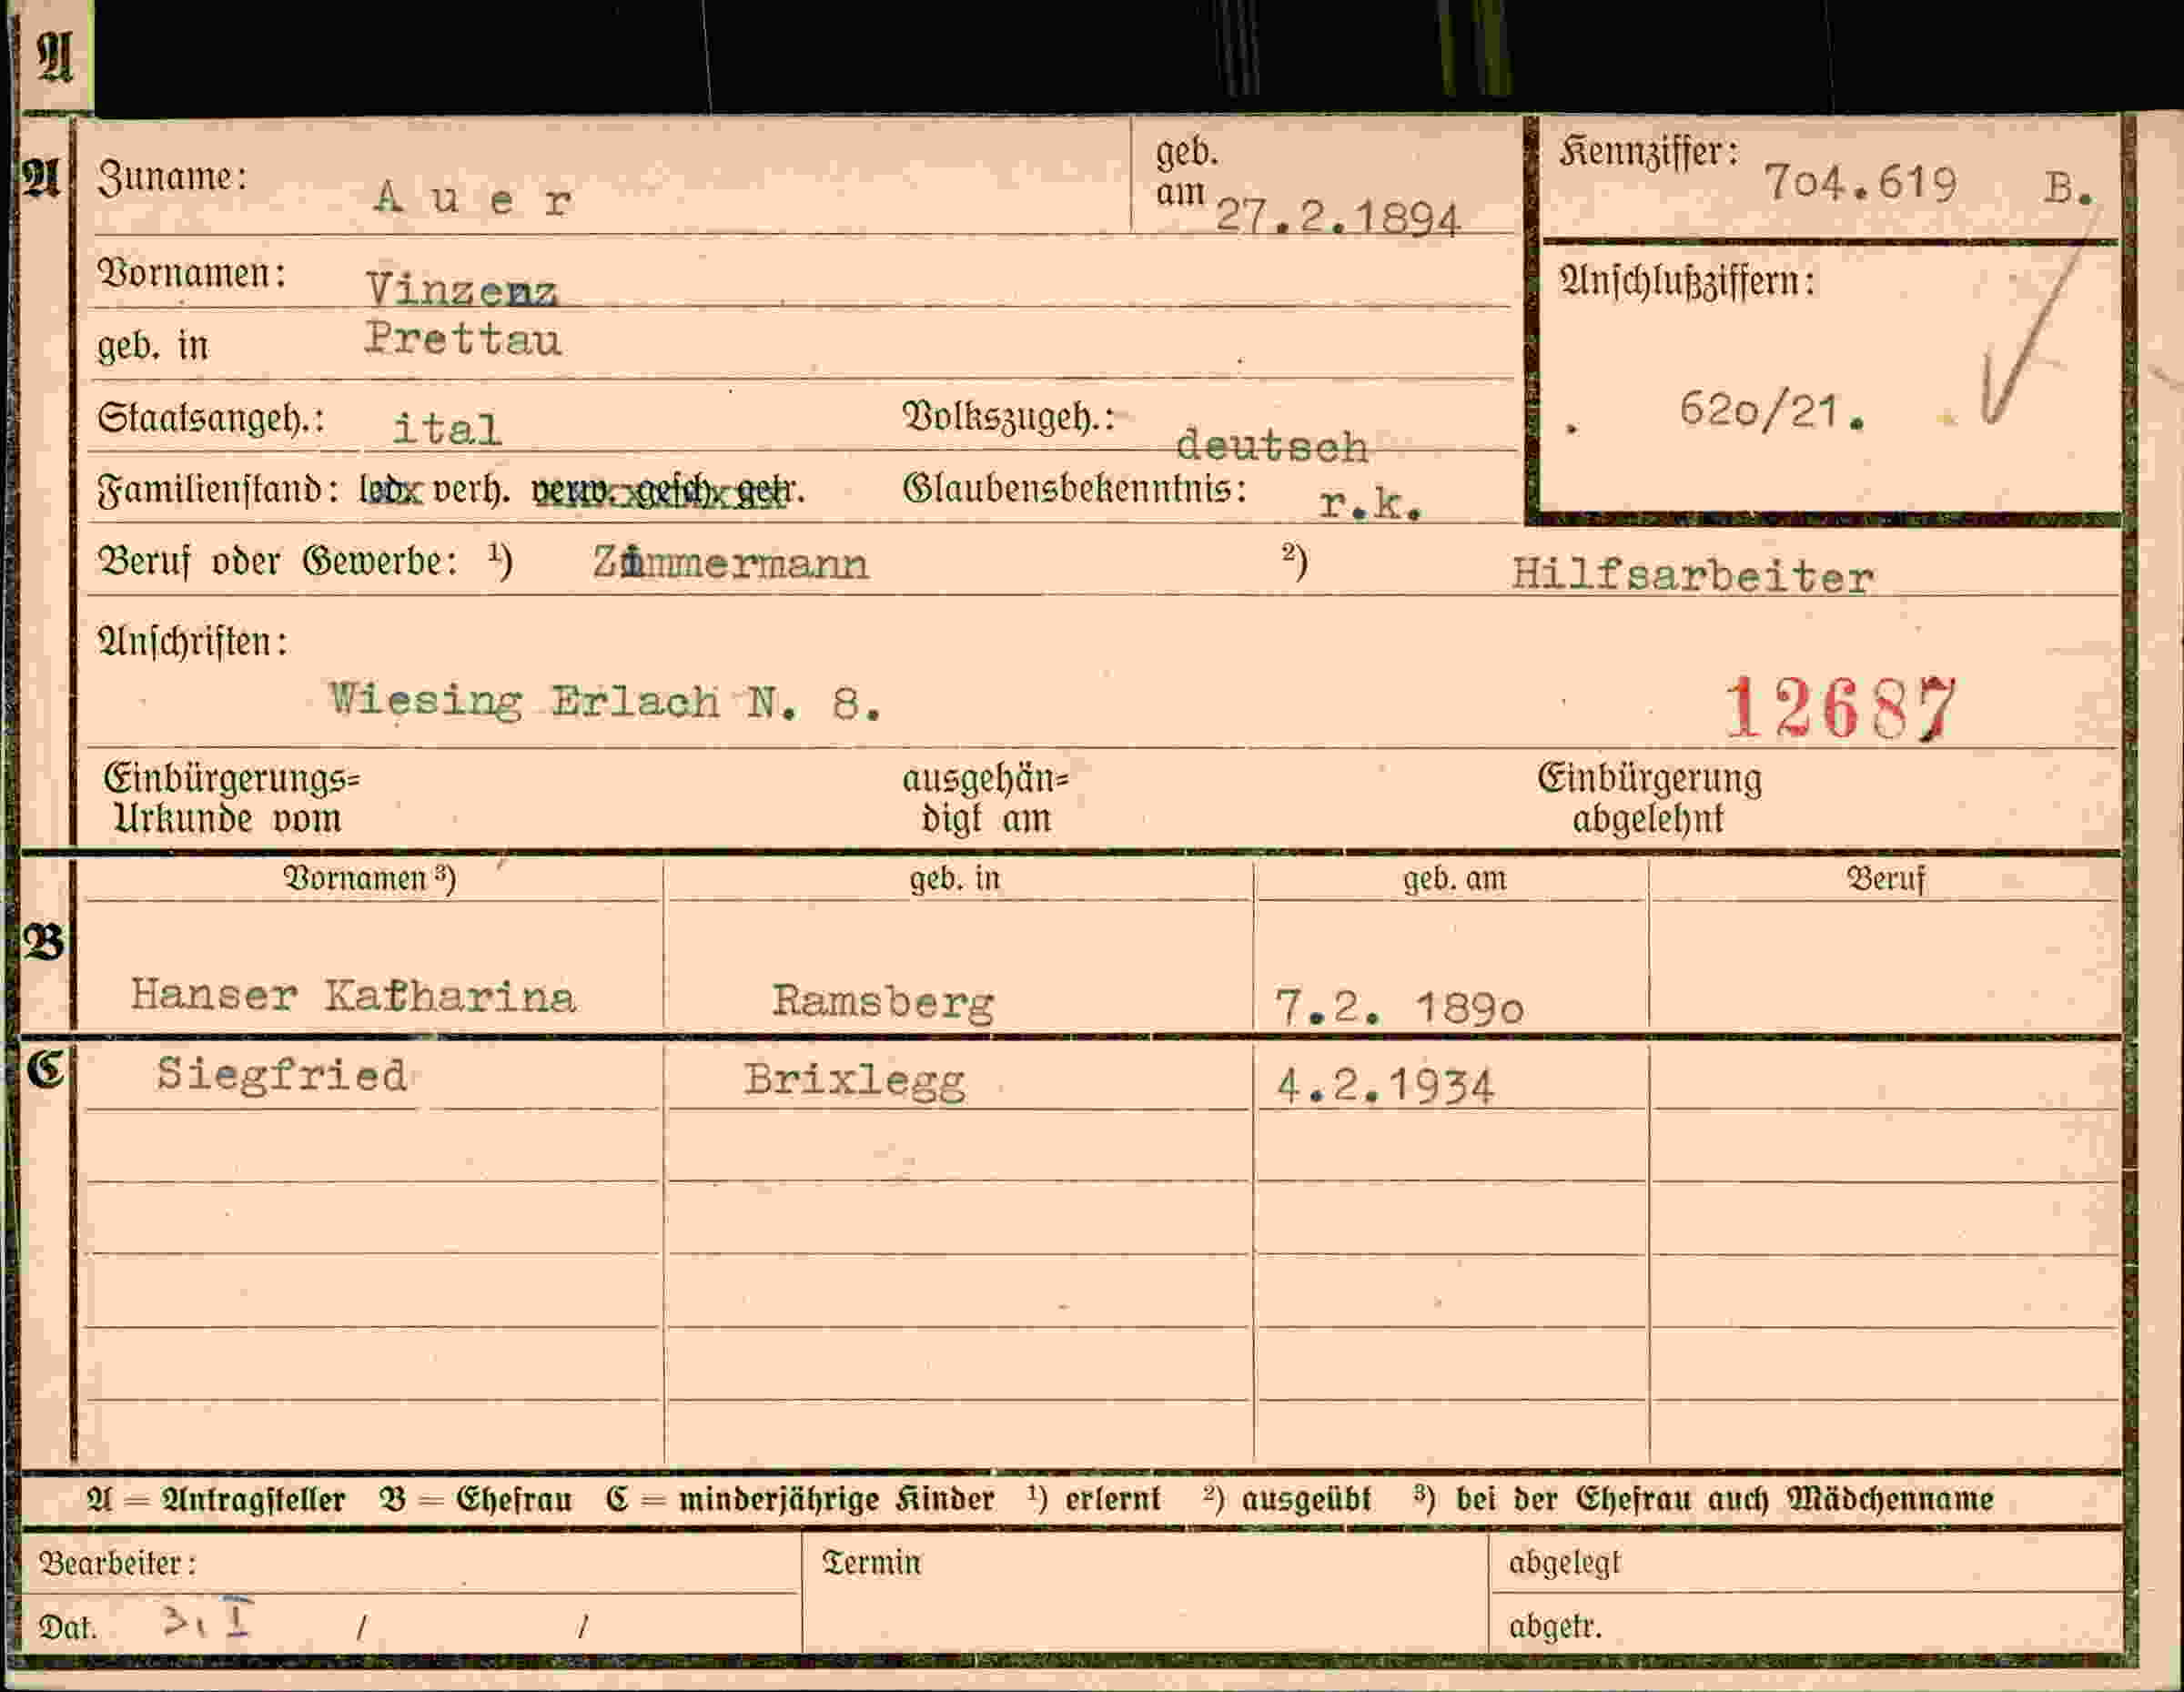 A
A Zuname: Auer geb. am 27.2.1894 Kennziffer: 7o4.619 B.
Vornamen: Vinzenz Anschlußziffern:
geb. in Prettau
Staatsangeh.: ital Volkszugeh.: deutsch 62o/21.
Familienstand: led. verh. verw. gesch. getr. Glaubensbekenntnis: r.k.
Beruf oder Gewerbe: ¹) Zimmermann ²) Hilfsarbeiter
Anschriften:
Wiesing Erlach N. 8. 12687
Einbürgerungs= ausgehän= Einbürgerung
Urkunde vom digt am abgelehnt
Vornamen ³) geb. in geb. am Beruf
B
Hanser Katharina Ramsberg 7.2. 189o
C Siegfried Brixlegg 4.2.1934
A = Antragsteller B = Ehefrau C = minderjährige Kinder ¹) erlernt ²) ausgeübt ³) bei der Ehefrau auch Mädchenname
Bearbeiter: Termin abgelegt
Dat. / / abgetr.